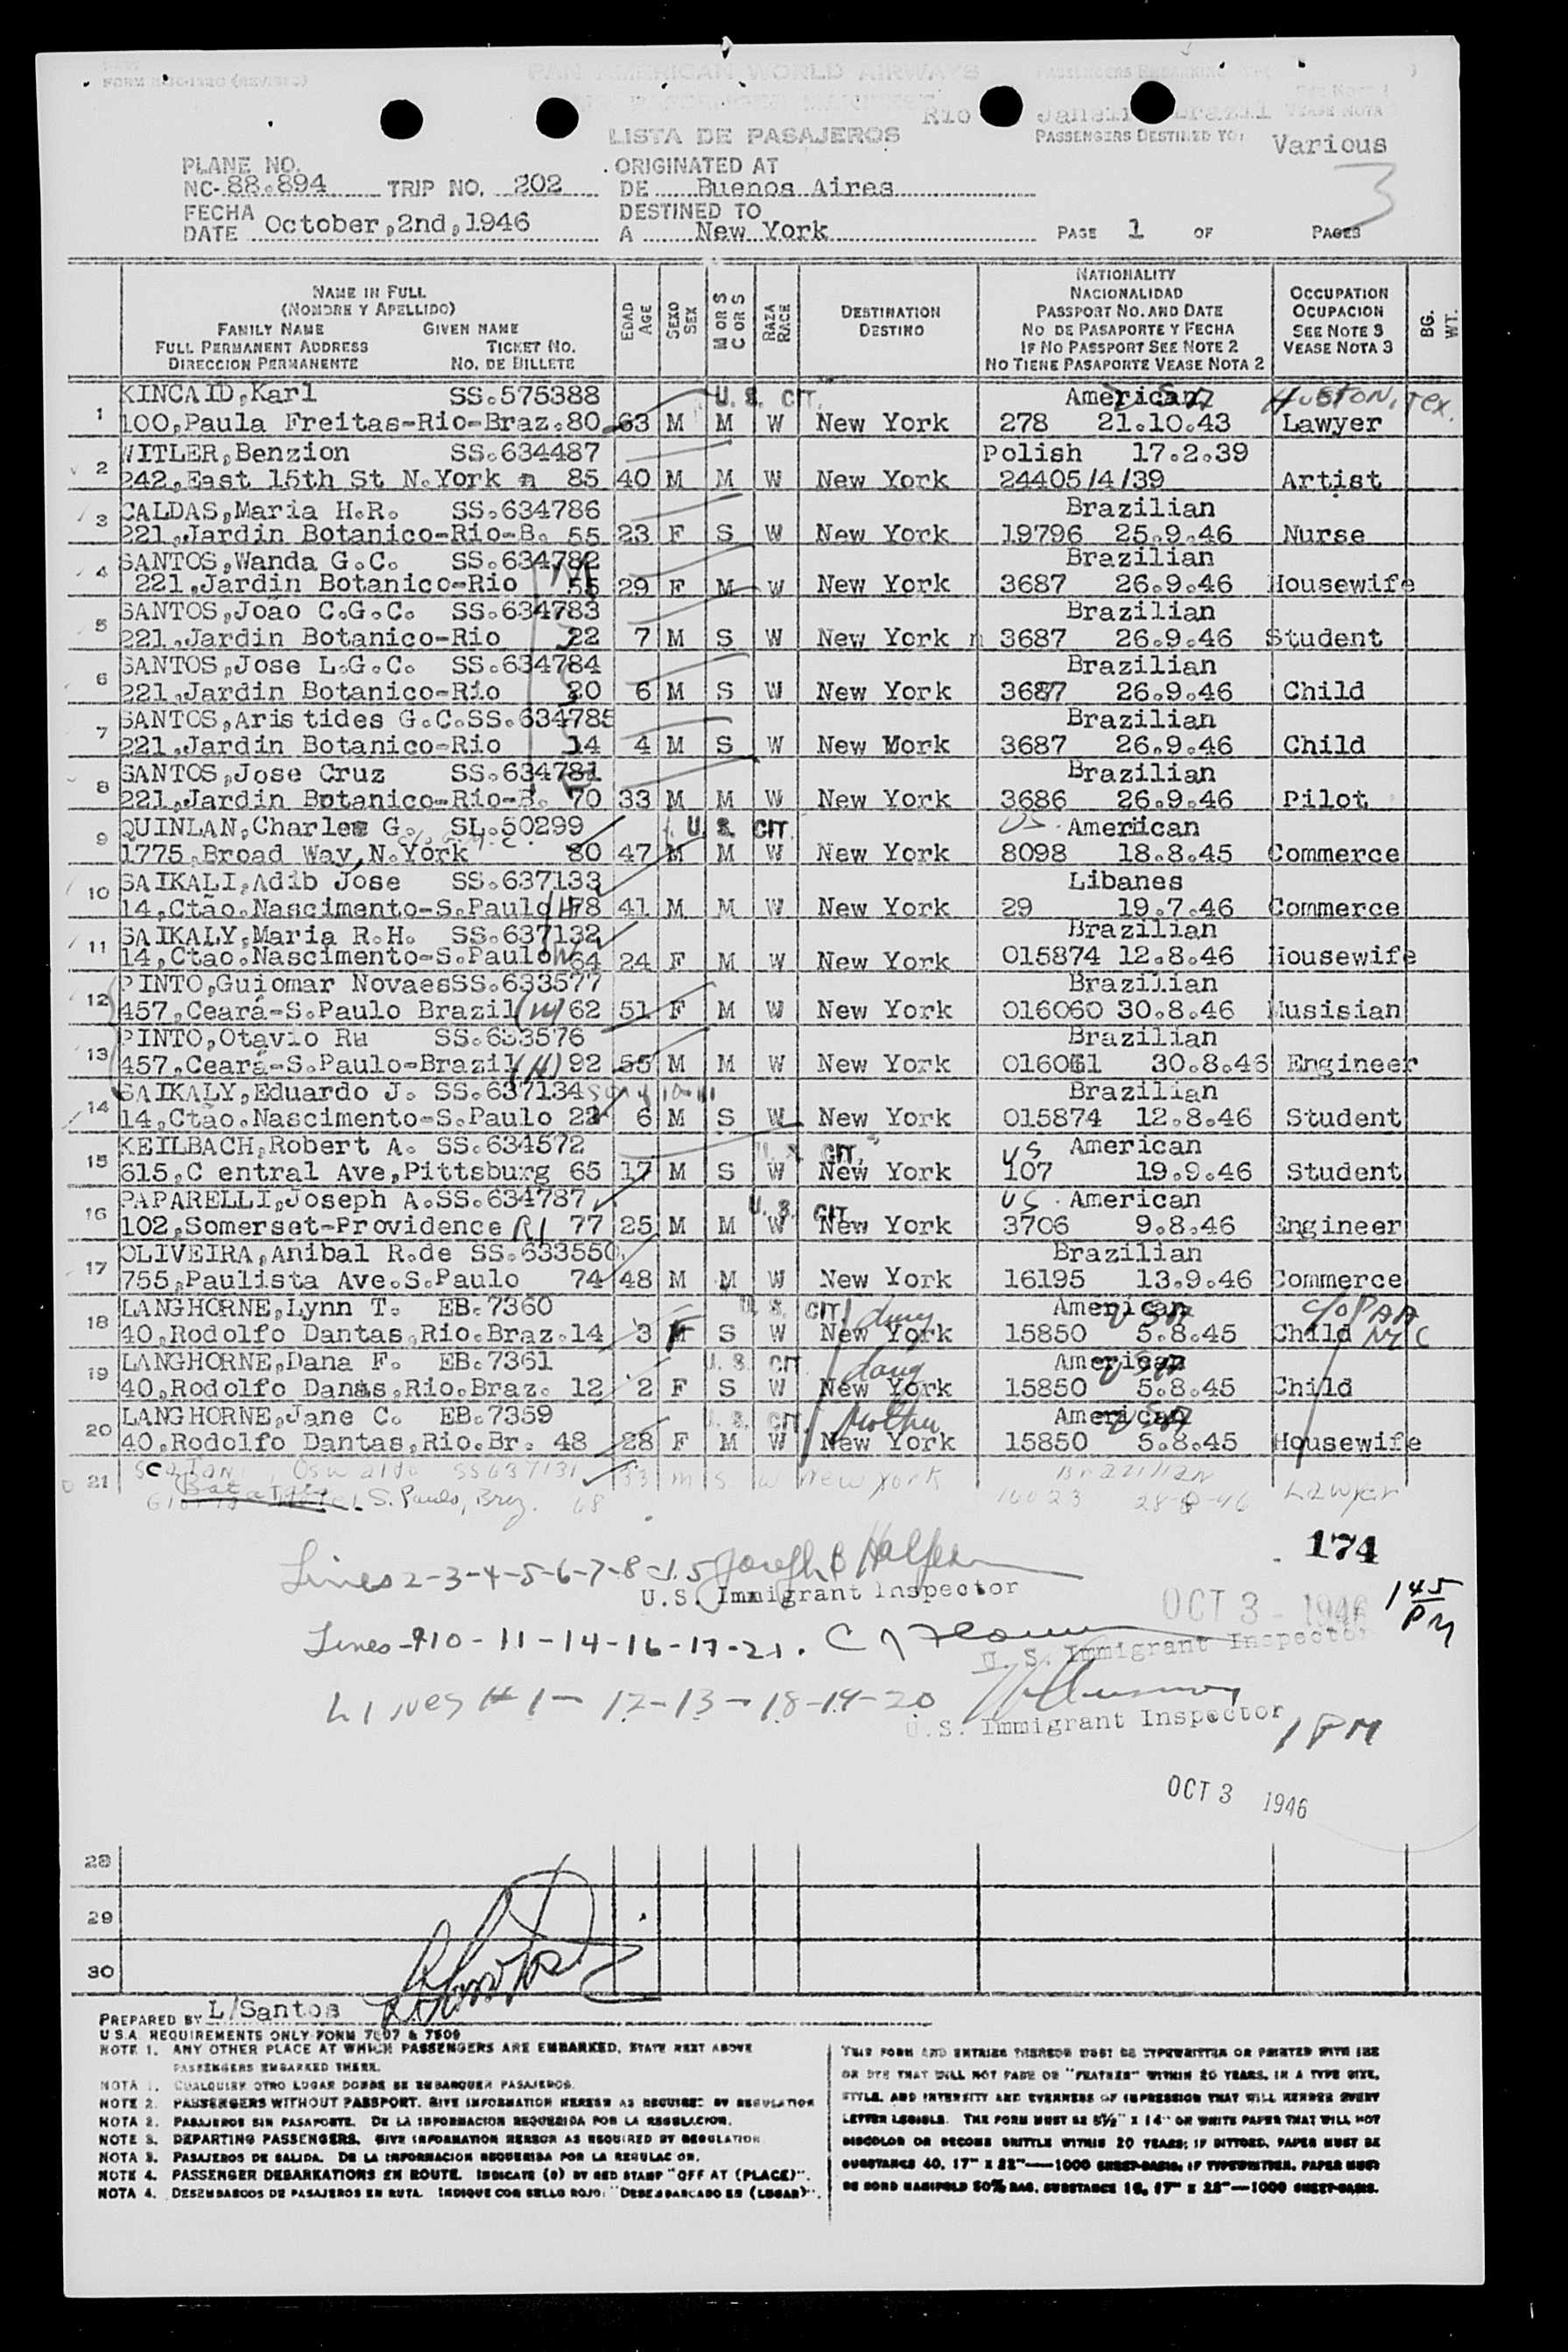 FORM (REVISED)
PAN AMERICAN WORLD AIRWAYS
Rio Janeir Brazil VEASE NOTA
LISTA DE PASAJEROS
PASSENGERS DESTINED TO: Various
3
PLANE NO. ORIGINATED AT
NC-88.894 TRIP NO. 202 DE Buenos Aires
FECHA DESTINED TO
DATE October,2nd,1946 A New York PAGE 1 OF PAGES
NAME IN FULL
(NOMBRE Y APELLIDO)
FAMILY NAME GIVEN NAME
FULL PERMANENT ADDRESS TICKET NO.
DIRECCION PERMANENTE NO. DE BILLETE
EDAD AGE
SEXO SEX
M OR S C OR S
RAZA RACE
DESTINATION DESTINO
NATIONALITY
NACIONALIDAD
PASSPORT NO. AND DATE
NO DE PASAPORTE Y FECHA
IF NO PASSPORT SEE NOTE 2
NO TIENE PASAPORTE VEASE NOTA 2
OCCUPATION
OCUPACION
SEE NOTE 3
VEASE NOTA 3
BG. WT.
KINCAID,Karl SS.575388 U. S. CIT. American USA HUSTON, TEX.
1 100,Paula Freitas-Rio-Braz.80 63 M M W New York 278 21.10.43 Lawyer
WITLER,Benzion SS.634487 Polish 17.2.39
2 242,East 15th St N.York n 85 40 M M W New York 24405/4/39 Artist
CALDAS,Maria H.R. SS.634786 Brazilian
3 221,Jardin Botanico-Rio-B. 55 23 F S W New York 19796 25.9.46 Nurse
SANTOS,Wanda G.C. SS.634782 Brazilian
4 221,Jardin Botanico-Rio 55 29 F M W New York 3687 26.9.46 Housewife
SANTOS,João C.G.C. SS.634783 Brazilian
5 221,Jardin Botanico-Rio 22 7 M S W New York n 3687 26.9.46 Student
SANTOS,Jose L.G.C. SS.634784 Brazilian
6 221,Jardin Botanico-Rio 20 6 M S W New York 3687 26.9.46 Child
SANTOS,Aristides G.C.SS.634785 Brazilian
7 221,Jardin Botanico-Rio 14 4 M S W New Mork 3687 26.9.46 Child
SANTOS,Jose Cruz SS.634781 Brazilian
8 221,Jardin Botanico-Rio-B. 70 33 M M W New York 3686 26.9.46 Pilot
QUINLAN,Charles G. SL.50299 U. S. CIT. US. American
9 1775,Broad Way,N.York 80 47 M M W New York 8098 18.8.45 Commerce
SAIKALI,Adib Jose SS.637133 Libanes
10 14,Ctão.Nascimento-S.Paulo H 78 41 M M W New York 29 19.7.46 Commerce
SAIKALY,Maria R.H. SS.637132 Brazilian
11 14,Ctao.Nascimento-S.Paulo W 64 24 F M W New York 015874 12.8.46 Housewife
PINTO,Guiomar NovaesSS.633577 Brazilian
12 457,Ceará-S.Paulo Brazil (W) 62 51 F M W New York 016060 30.8.46 Musisian
PINTO,Otavio Ru SS.633576 Brazilian
13 457,Ceará-S.Paulo-Brazil (H) 92 55 M M W New York 016061 30.8.46 Engineer
SAIKALY,Eduardo J. SS.637134 son of 10-11 Brazilian
14 14,Ctão.Nascimento-S.Paulo 22 6 M S W New York 015874 12.8.46 Student
KEILBACH,Robert A. SS.634572 U. S. CIT. US American
15 615,C entral Ave,Pittsburg 65 17 M S W New York 107 19.9.46 Student
PAPARELLI,Joseph A.SS.634787 U. S. CIT. US. American
16 102,Somerset-Providence RI 77 25 M M W New York 3706 9.8.46 Engineer
OLIVEIRA,Anibal R.de SS.633550 Brazilian
17 755,Paulista Ave.S.Paulo 74 48 M M W New York 16195 13.9.46 Commerce
LANGHORNE,Lynn T. EB.7360 U. S. CIT. daug American USA c/o PAA
18 40,Rodolfo Dantas,Rio.Braz.14 3 F S W New York 15850 5.8.45 Child NYC
LANGHORNE,Dana F. EB.7361 U. S. CIT. daug American USA
19 40,Rodolfo Danas,Rio.Braz. 12 2 F S W New York 15850 5.8.45 Child
LANGHORNE,Jane C. EB.7359 U. S. CIT. Mother American USA
20 40,Rodolfo Dantas,Rio.Br. 48 28 F M W New York 15850 5.8.45 Housewife
21 Oswaldo SS637131 33 M S W New York Brazilian Lawyer
S. Paulo, Braz. 68 16023 28-8-46
174
Lines 2-3-4-5-6-7-8-15 Joseph B Halpern
U.S. Immigrant Inspector
OCT 3 - 1946 1 45 PM
Lines -9 10-11-14-16-17-21.
U. S. Immigrant Inspector
LINES # 1- 12-13-18-19-20
U.S. Immigrant Inspector 1 PM
OCT 3 1946
28
29
30
PREPARED BY L/Santos
U.S.A. REQUIREMENTS ONLY FORM 7507 & 7509
NOTE 1. ANY OTHER PLACE AT WHICH PASSENGERS ARE EMBARKED, STATE NEXT ABOVE
PASSENGERS EMBARKED THERE.
NOTA 1. CUALQUIER OTRO LUGAR DONDE SE EMBARQUEN PASAJEROS.
NOTE 2. PASSENGERS WITHOUT PASSPORT. GIVE INFORMATION HEREON AS REQUIRED BY REGULATION
NOTA 2. PASAJEROS SIN PASAPORTE. DE LA INFORMACION REQUERIDA POR LA REGULACION.
NOTE 3. DEPARTING PASSENGERS. GIVE INFORMATION HEREON AS REQUIRED BY REGULATION
NOTA 3. PASAJEROS DE SALIDA. DE LA INFORMACION REQUERIDA POR LA REGULACION.
NOTE 4. PASSENGER DEBARKATIONS EN ROUTE. INDICATE (@) BY RED STAMP "OFF AT (PLACE)".
NOTA 4. DESEMBARCOS DE PASAJEROS EN RUTA. INDIQUE CON SELLO ROJO: "DESEMBARCADO EN (LUGAR)".
THIS FORM AND ENTRIES THEREON MUST BE TYPEWRITTEN OR PRINTED WITH INK
OR DYE THAT WILL NOT FADE OR "FEATHER" WITHIN 20 YEARS, IN A TYPE SIZE,
STYLE, AND INTENSITY AND EVENNESS OF IMPRESSION THAT WILL RENDER EVERY
LETTER LEGIBLE. THE FORM MUST BE 8½" X 14" ON WHITE PAPER THAT WILL NOT
DISCOLOR OR BECOME BRITTLE WITHIN 20 YEARS; IF DITTOED, PAPER MUST BE
SUBSTANCE 40, 17" X 22"—1000 SHEET-BASIS; IF TYPEWRITTEN, PAPER MUST
BE BOND MANIFOLD 50% RAG, SUBSTANCE 16, 17" X 22"—1000 SHEET-BASIS.